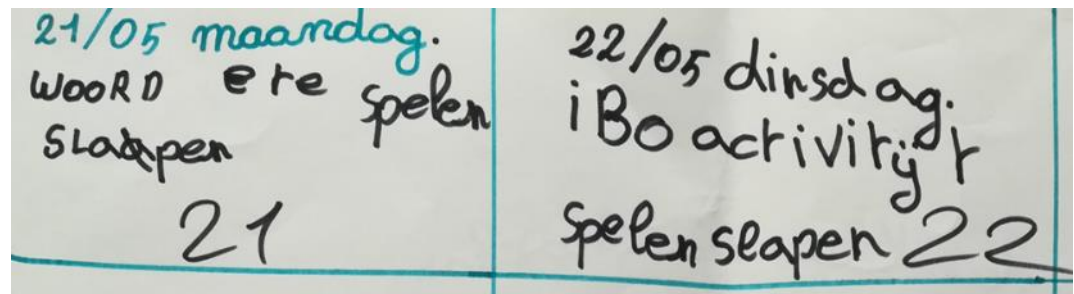 21/05 maandag.
WOORD ete spelen
Slaapen
21
22/05 dinsdag.
iBO activityt
spelen slapen 22